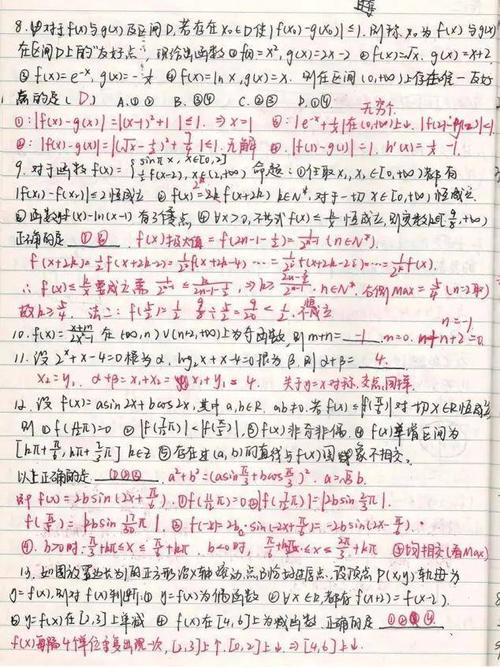 8. 对于f(x)与g(x)及区间D,若存在x₀∈D使|f(x₀)-g(x₀)|≤1,则称x₀为f(x)与g(x)
在区间D上的"友好点".现给出函数①f(x)=x²,g(x)=2x-2 ②f(x)=√x,g(x)=x+2
③f(x)=e^-x,g(x)=-1/x ④f(x)=ln x,g(x)=x.则在区间(0,+∞)上存在唯一友好
点的是(D) A.①② B.③④ C.②③ D.①④
无穷个
①:|f(x)-g(x)|=|(x-1)²+1|≤1.⇒x=1 ③:|e^-x+1/x|在(0,+∞)上↓.
②:|f(x)-g(x)|=|(√x-1/2)²+7/4|≤1.无解 ④:|f(1)-g(1)|=1. h'(x)=1/x-1
9. 对于函数f(x)={sinπx, x∈[0,2] 1/2f(x-2), x∈(2,+∞) 命题:①任取x₁,x₂∈[0,+∞)都有
|f(x₁)-f(x₂)|≤2恒成立 ②f(x)=2^k f(x+2k) k∈N*,对于一切x∈[0,+∞)恒成立.
③函数f(x)-ln(x-1)有3个零点 ④∀x>0,不等式f(x)≤k/x恒成立,则实数k∈[9/8,+∞)
正确的是 f(x)极大值=f(2n-1-1/2)=1/2^n-1 (n∈N*).
f(x+2k)=1/2f(x+2k-2)=1/2²f(x+2k-4)……=1/2^k f(x).
∴f(x)≤k/x要成立需 n∈N*.右侧Max=5/4 (n=2取)
故k≥5/4. 法二: 不成立
n=-1
10. f(x)=(x+m)/(2x²-1)在(-∞,n)∪(n+2,+∞)上为奇函数,则m+n= -1 . m=0. n+n+2=0
11. 设2^x+x-4=0根为α, log₂x+x-4=0根为β,则α+β= 4 .
x₂=y₁. α+β=x₁+x₂=x₁+y₁=4. 关于y=x对称,
12. 设f(x)=asin2x+bcos2x,其中a,b∈R, ab≠0.若f(x)≤|f(π/6)|对一切x∈R恒成立
则①f(11/12π)=0 ②|f(7/12π)|<|f(π/5)| ③f(x)非奇非偶 ④f(x)单增区间为
[kπ+π/6,kπ+2/3π] k∈Z ⑤存在过(a,b)的直线与f(x)图象不相交.
以上正确的是 ①③ . a²+b²=(asinπ/3+bcosπ/3)². a=√3b.
即f(x)=2bsin(2x+π/6).①f(11/12π)=0 ②|f(7/12π)|=|2bsin
f(π/5)=|2bsin17/30π|. ③f(-x)=2b·sin(-2x+π/6)=-2bsin(2x-π/6).
④.b>0时:-π/3+kπ≤x≤π/6+kπ. b<0时,π/6+kπ≤x≤2π/3+kπ ⑤均相交(看Max)
13. 如图放置边长为1的正方形沿x轴滚动,点B恰好过原点.设顶点P(x,y)轨迹为
y=f(x),则对f(x)判断:①y=f(x)为偶函数 ②∀x∈R,都有f(x+2)=f(x-2).
③y=f(x)在[2,3]上单减 ④f(x)在[4,6]上为减函数 正确的是
f(x)每隔4个单位重复出现一次,[2,3]上↑.[0,2]上↓⇒[4,6]上↓.